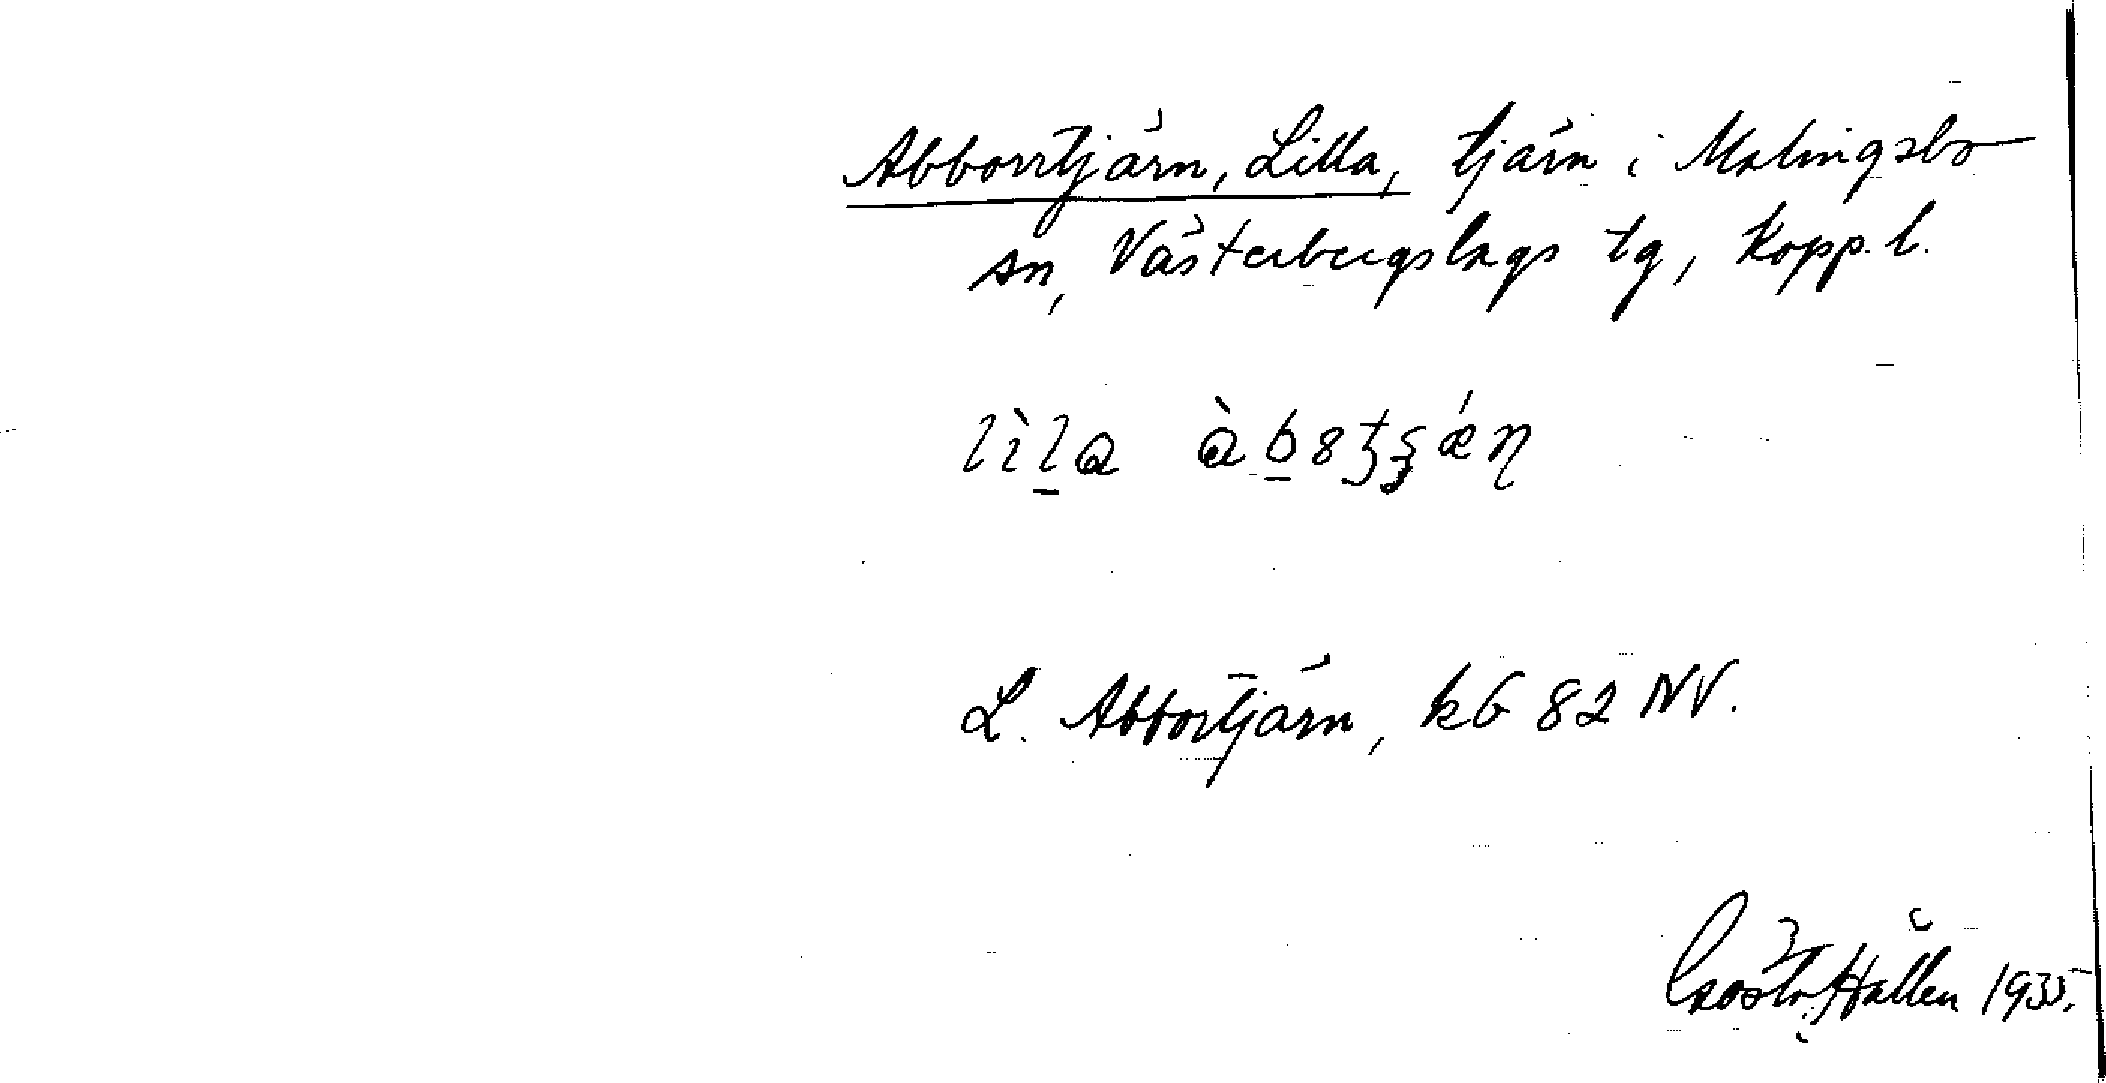 Abborrtjärn, Lilla, tjärn i Malingsbo
sn, Västerbergslags tg, Kopp. l.
lìla àb8
L. Abbortjärn, kb 82 NV.
Gösta Hallén 1935.